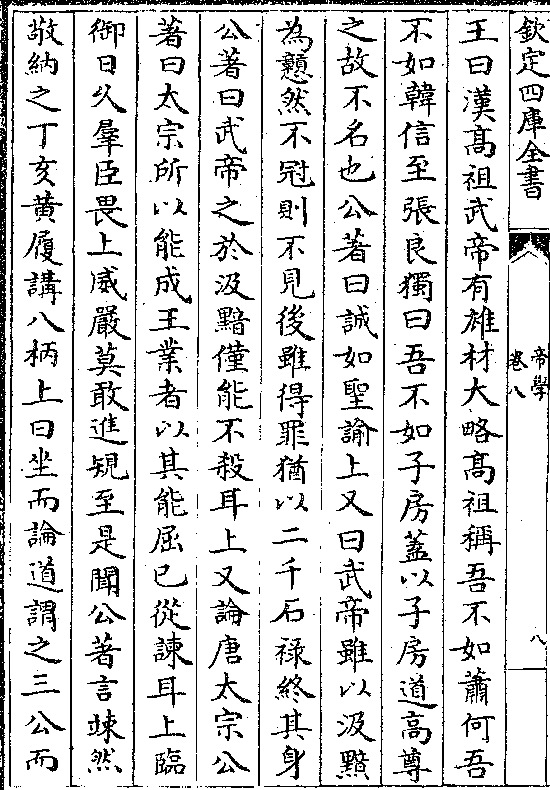 欽定四庫全書
帝學
卷八
八
王曰漢髙祖武帝有雄材大略髙祖稱吾不如蕭何吾
不如韓信至張良獨曰吾不如子房蓋以子房道髙尊
之故不名也公著曰誠如聖諭上又曰武帝雖以汲黯
為戇然不冠則不見後雖得罪猶以二千石禄終其身
公著曰武帝之於汲黯僅能不殺耳上又論唐太宗公
著曰太宗所以能成王業者以其能屈已從諫耳上臨
御日久羣臣畏上威嚴莫敢進規至是聞公著言竦然
敬納之丁亥黄履講八柄上曰坐而論道謂之三公而